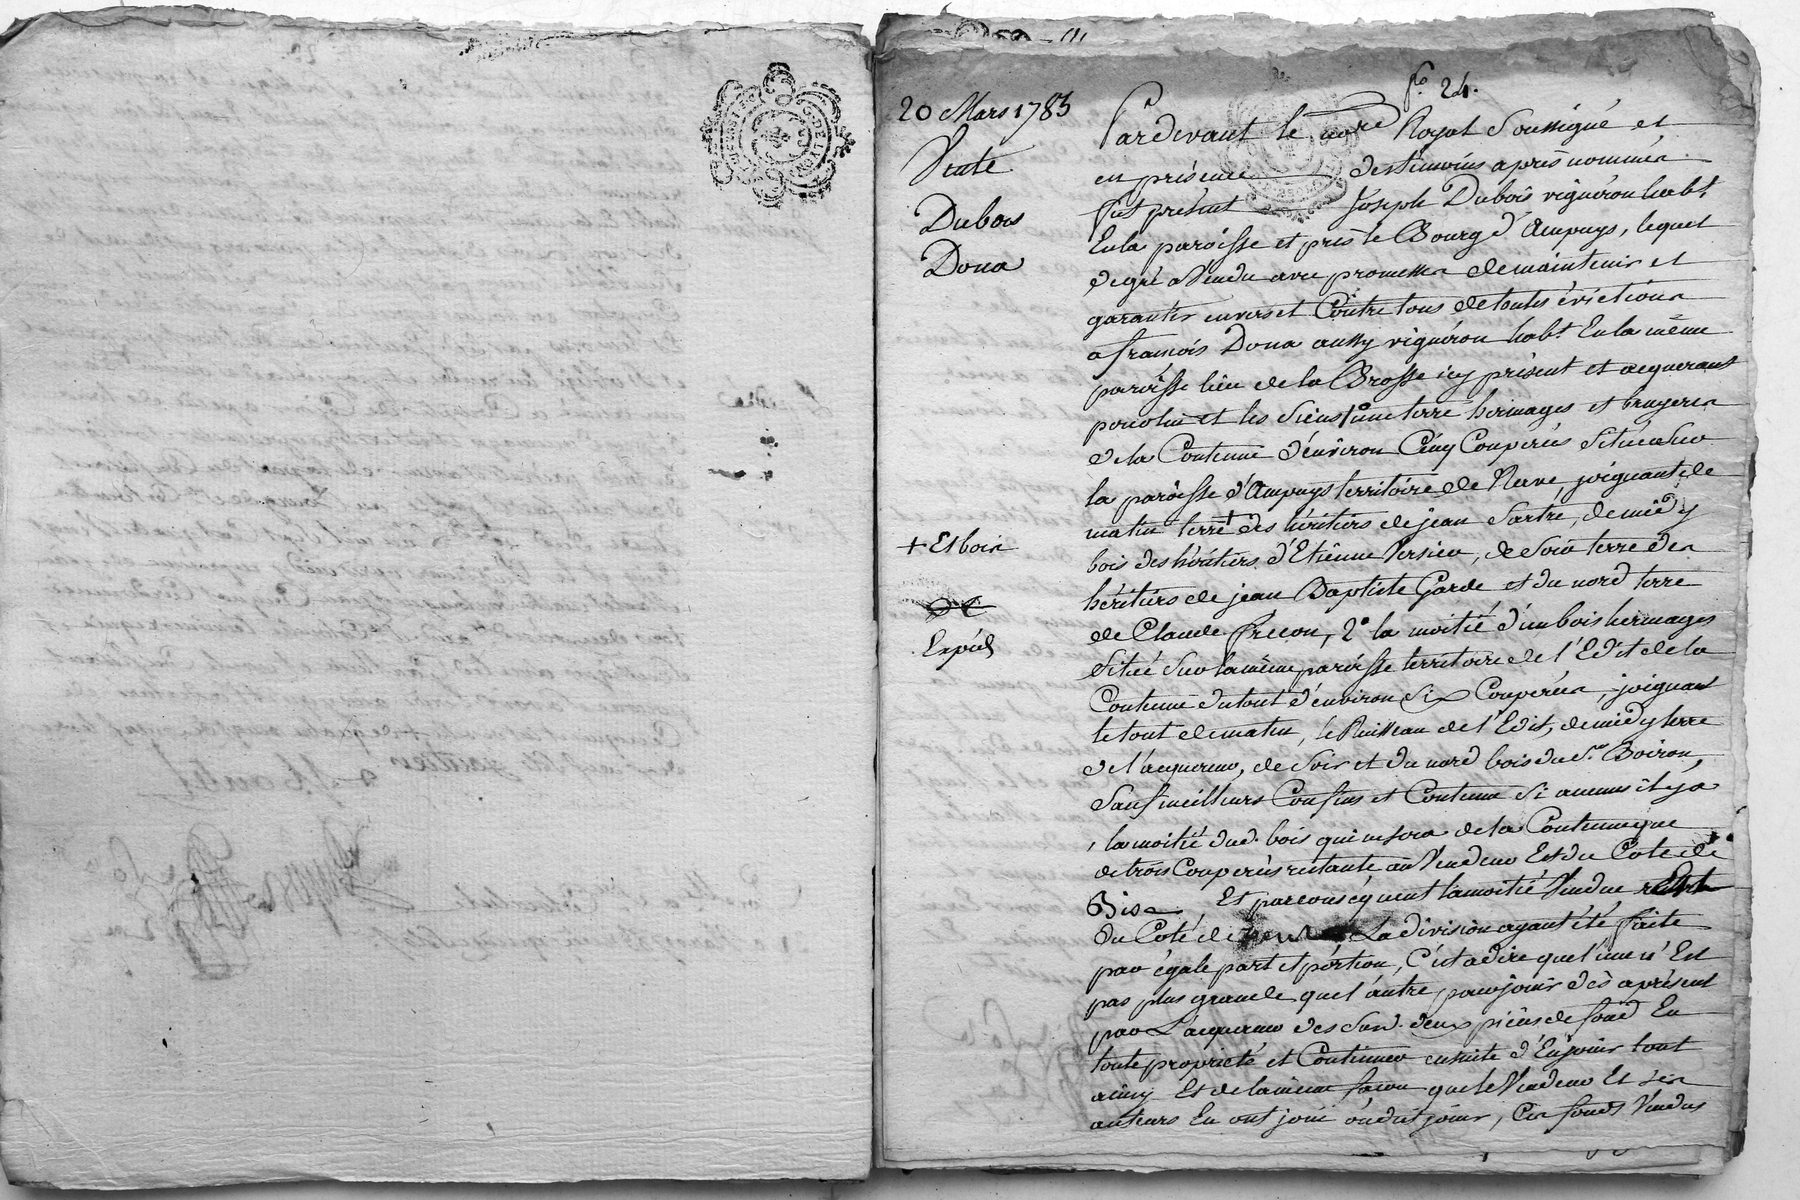 f.o 24.
20 Mars 1783
Vente
Dubois
Dona
+ Et bois
Expéd
Pardevant le nore Royal Soussigné et
en présence des témoins après nommés
fut présent Joseph Dubois vigneron habt
En la paroisse et près le Bourg d'Ampuys, lequel
de gré a Vendu avec promesse de maintenir et
garantir envers et Contre tous de toutes évictions
a françois Dona aussy vigneron habt. En la même
paroisse lieu de la Brosse icy présent et acquerant
pour lui et les Siens 1o une terre hermages et bruyeres
de la Contenue d'environ Cinq Couperées Située Sur
la paroisse d'Ampuys territoire de Nerve, joignant de
matin terre + des héritiers de jean Sartre, de midy
bois des héritiers d'Etienne Versieu, de Soir terre des
héritiers de jean Baptiste Garde et du nord terre
de Claude frecon, 2o la moitié d'un bois hermages
Situé Sur la même paroisse territoire de l'Edit de la
Contenue du tout d'environ Six Couperées, joignant
le tout de matin, le Ruisseau de l'Edit, de midy terre
de l'acquereur, de Soir et du nord bois du Sr Boiron,
Sauf meilleurs Confins et Contenue Si aucuns il y a,
la moitié dud. bois qui ne sera de la Contenue que
de trois Couperées restante au Vendeur Est du Coté de
Bise Et par conséquent la moitié Vendue
du Coté de La division ayant été faite
par égale part et portion, C'est a dire que l'une n'Est
pas plus grande que l'autre pour jouir dès a présent
par L'acquereur des Susd. deux pièces de fond En
toute propriété et Continuer ensuite d'En jouir tout
ainsy Et de la même façon que le Vendeur Et Ses
auteurs En ont joui ou dut jouir, Ces fonds Vendus